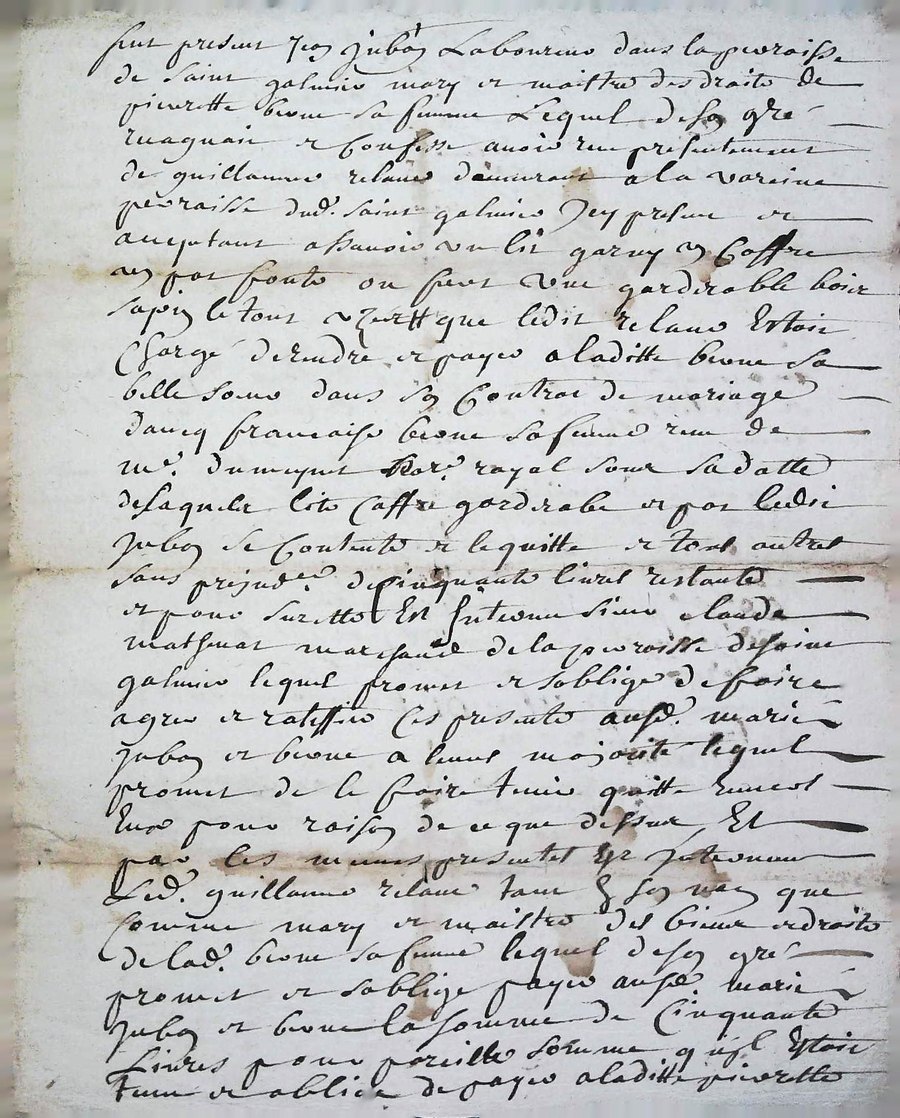 fut present Jean Juban Laboureur dans la parroisse
de Saint galmier mary et maistre des droits de
pierrette beone sa femme Lequel de son gré
et Confesse avoir reçu presentement
de guillaume relave demurant a la vareine
parraisse dud. saint galmier Jcy present et
acceptant a Sçavoir un lit garny un Coffre
un pot fonte ou feert une garderobbe bois
sapin le tout que ledit relave Estoit
Chargé de rendre et payer a laditte beone sa
belle soeur dans son Contrat de mariage
francaise beone sa femme reçu de
me. royal sous sa datte
desaquels lits Coffre garderobe et pot ledit
Juban se Contente et le quitte et tous autres
sans prejudice de Cinquante livres restante
et pour surette Est Jntervenu sieur claude
marchand de la parroisse de saint
galmier lequel promet et soblige de faire
agreer et ratiffier Ces presente ausd. mariés
Jubon et beone a leurs majorité lequel
promet de le faire tenir quitte Envers
Eux pour raison de ce que dessus Et
par Ces mesmes presentes Est Jntervenu
Led. guillaume relave tant son nom que
Comme mary et maistre des biens et droits
de lad. beone sa femme lequel de son gré
promet et soblige payer ausd. mariés
Jubon et beone la somme de Cinquante
Livres pour pareille somme qu'il Estoit
tenu et obligé de payer a laditte pierrette